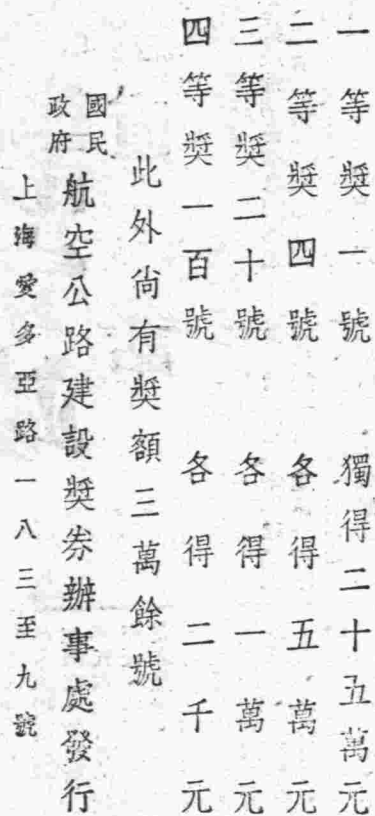 一等獎一號 獨得二十五萬元
二等獎四號 各得五萬元
三等獎二十號 各得一萬元
四等獎一百號 各得二千元
此外尚有獎額三萬餘號
國民政府航空公路建設獎券辦事處發行
上海愛多亞路一八三至九號